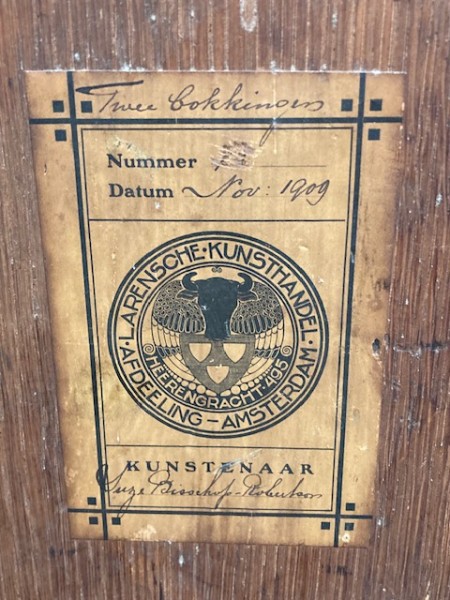 Twee bokkingen
Nummer
Datum Nov: 1909
LARENSCHE·KUNSTHANDEL·
AFDEELING–AMSTERDAM·
HEERENGRACHT·495
KUNSTENAAR
Suze Bisschop-Robertson